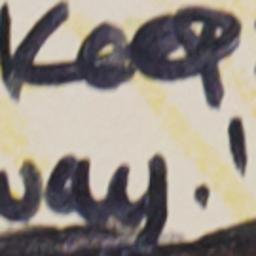 Keep
way!